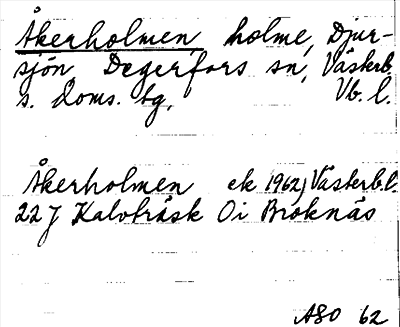 Åkerholmen holme, Djur-
sjön Degerfors sn, Västerb.
s. doms. tg, Vb. l.
Åkerholmen ek (1962) Västerb.l.
22 J Kalvträsk Oi Broknäs
ASO 62